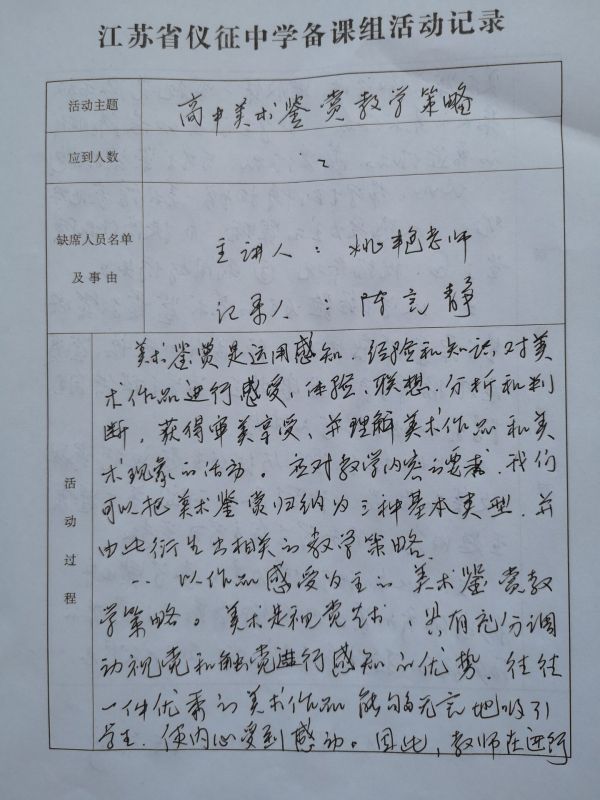 江苏省仪征中学备课组活动记录
活动主题
高中美术鉴赏教学策略
应到人数
2
缺席人员名单
及事由
主讲人：姚艳老师
记录人：陈言静
活动过程
美术鉴赏是运用感知、经验和知识，对美
术作品进行感受、体验、联想、分析和判
断，获得审美享受、并理解美术作品和美
术现象的活动。应对教学内容的要求，我们
可以把美术鉴赏归纳为三种基本类型，并
由此衍生出相关的教学策略。
一、以作品感受为主的美术鉴赏教
学策略。美术是视觉艺术，具有充分调
动视觉和触觉进行感知的优势，往往
一件优秀的美术作品能够无言地吸引
学生，使内心受到感动。因此，教师在进行